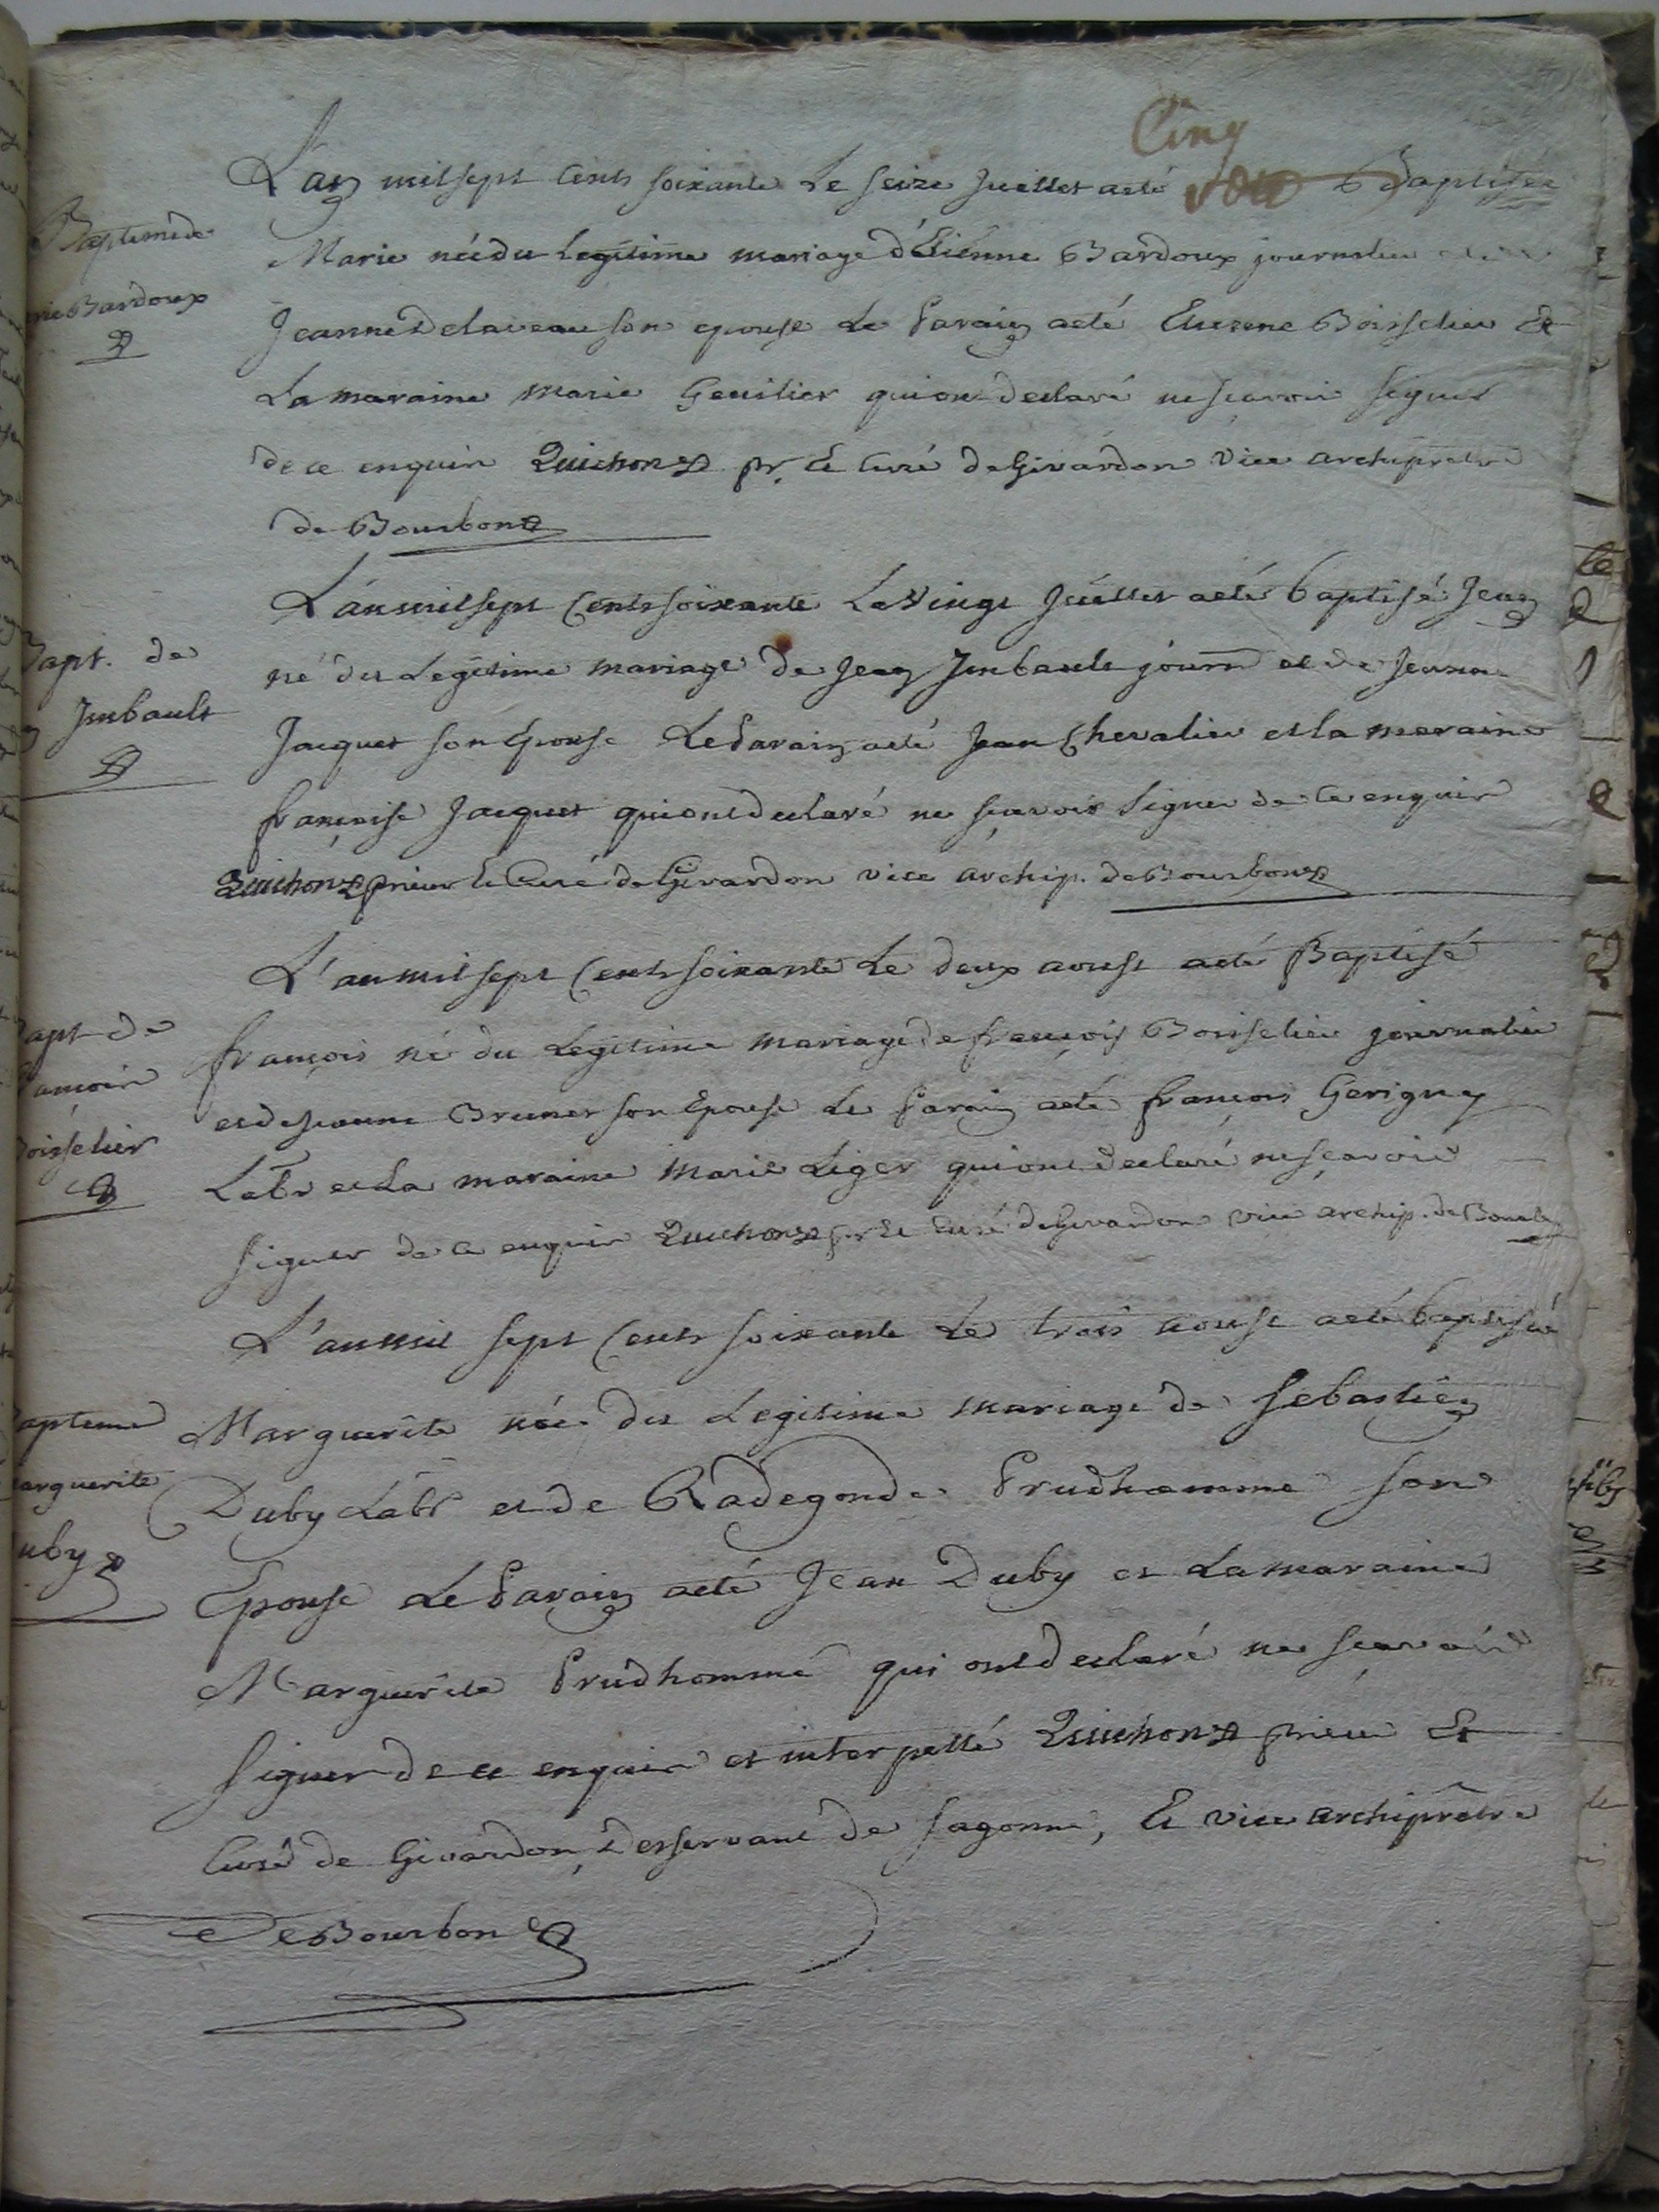 Cinq
L'an mil sept cents soixante Le seize Juillet a eté Baptisée
Baptême de
Marie née du Legitime mariage d'Etienne Bardoux journalier
rie Bardoux
Jeanne Delaveau son epouse Le Parain a eté Boisselier Et
La maraine Marie Gevilier qui ont declaré ne scavoir signer
de ce enquir Quichon pr. Et Curé de Givardon Vice archiprêtre
de Bourbon
L'an mil sept Cents soixante Le Vingt Juillet a eté baptisé Jean
Bapt. de
né du Legitime mariage de Jean Imbault journ et de Jeanne
Imbault
Jacquet son Epouse Le Parain a eté Jean Chevalier et la maraine
françoise Jacquet qui ont declaré ne sçavoir signer de ce enquir
Quichon prieur Et Curé de Givardon vice archip. de Bourbon
L'an mil sept Cents soixante Le deux aoust a eté Baptisé
apt de
françois né du Legitime mariage de françois Boisselier journalier
ançois
et de Jeanne Bruner son Epouse Le Parain a eté françois Gerigny
oisselier
Labr et La maraine Marie Liger qui ont declaré ne sçavoir
signer de ce enquir Quichon pr Et Curé de Givardon vice archip. de Bourbon
L'an mil sept Cents soixante Le trois aoust a eté baptisée
apteme
Marguerite née du Legitime mariage de Sebastien
arguerite
Duby Labr et de Radegonde Prudhomme son
uby
Epouse Le Parain a eté Jean Duby et La maraine
Marguerite Prudhomme qui ont declaré ne scavoir
signer de ce enquir et interpellé Quichon prieur Et
Curé de Givardon, Desservant de Sagonne, Et vice archiprêtre
De Bourbon